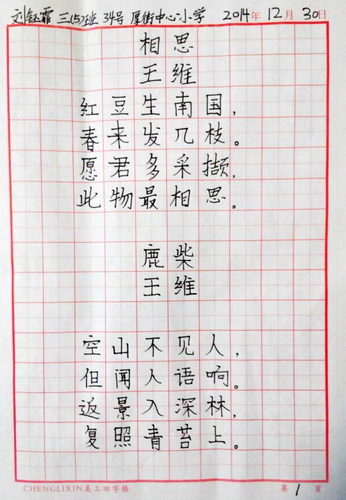 刘钰霏 三(5)班 34号 厚街中心小学 2014年 12月 30日
相思
王维
红豆生南国，
春来发几枝。
愿君多采撷，
此物最相思。
鹿柴
王维
空山不见人，
但闻人语响。
返景入深林，
复照青苔上。
CHENGLIXIN美工田字格 第1页